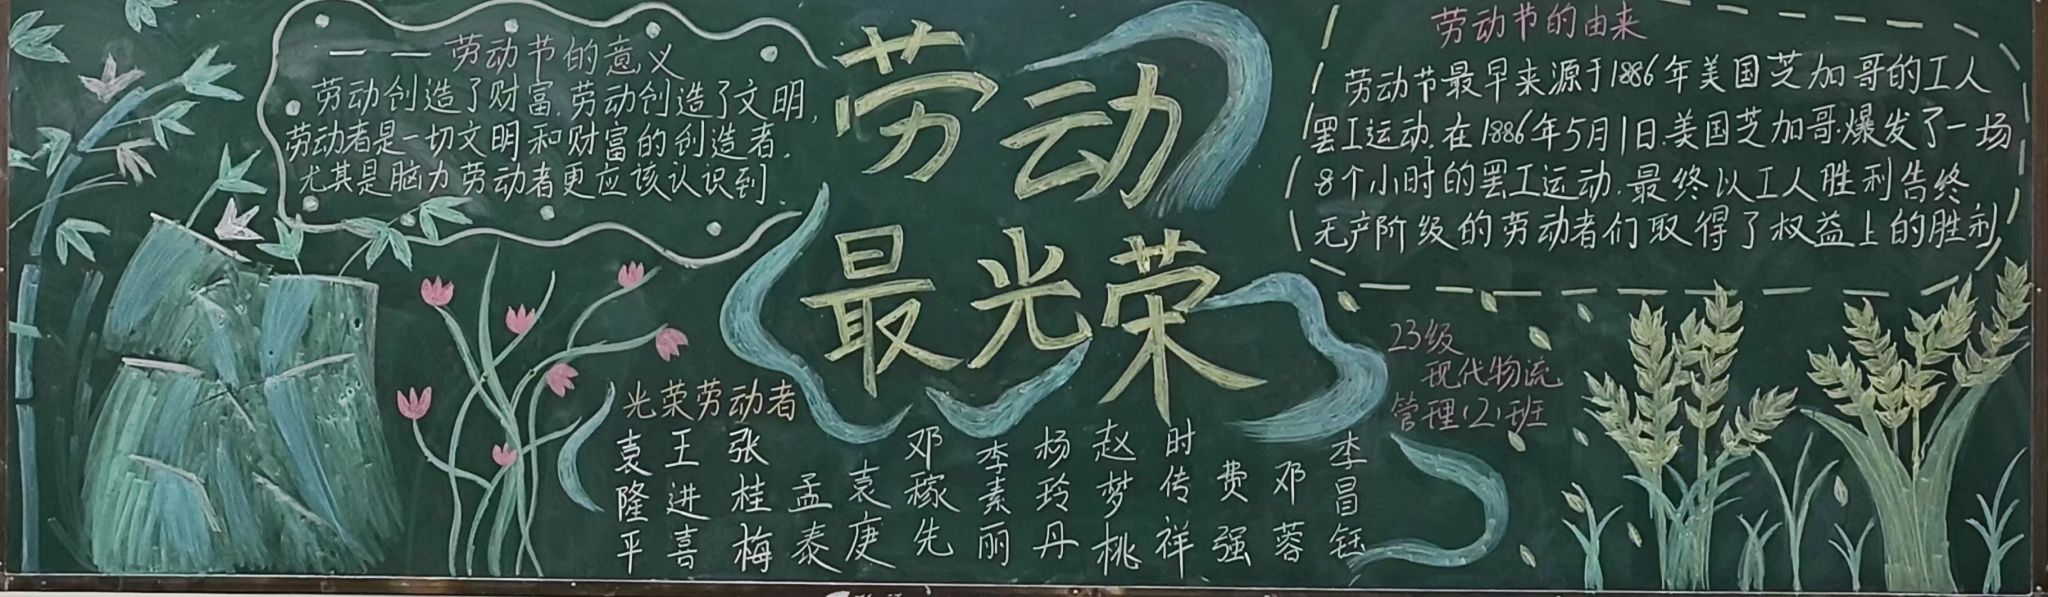 ——劳动节的意义
劳动创造了财富.劳动创造了文明,
劳动者是一切文明和财富的创造者.
尤其是脑力劳动者更应该认识到.
劳动
最光荣
劳动节的由来
劳动节最早来源于1886年美国芝加哥的工人
罢工运动.在1886年5月1日.美国芝加哥.爆发了一场
8个小时的罢工运动.最终以工人胜利告终
无产阶级的劳动者们取得了权益上的胜利
23级
现代物流
管理(2)班
光荣劳动者
袁隆平
王进喜
张桂梅
孟泰
袁庚
邓稼先
李素丽
杨玲丹
赵梦桃
时传祥
费强
邓蓉
李昌钰